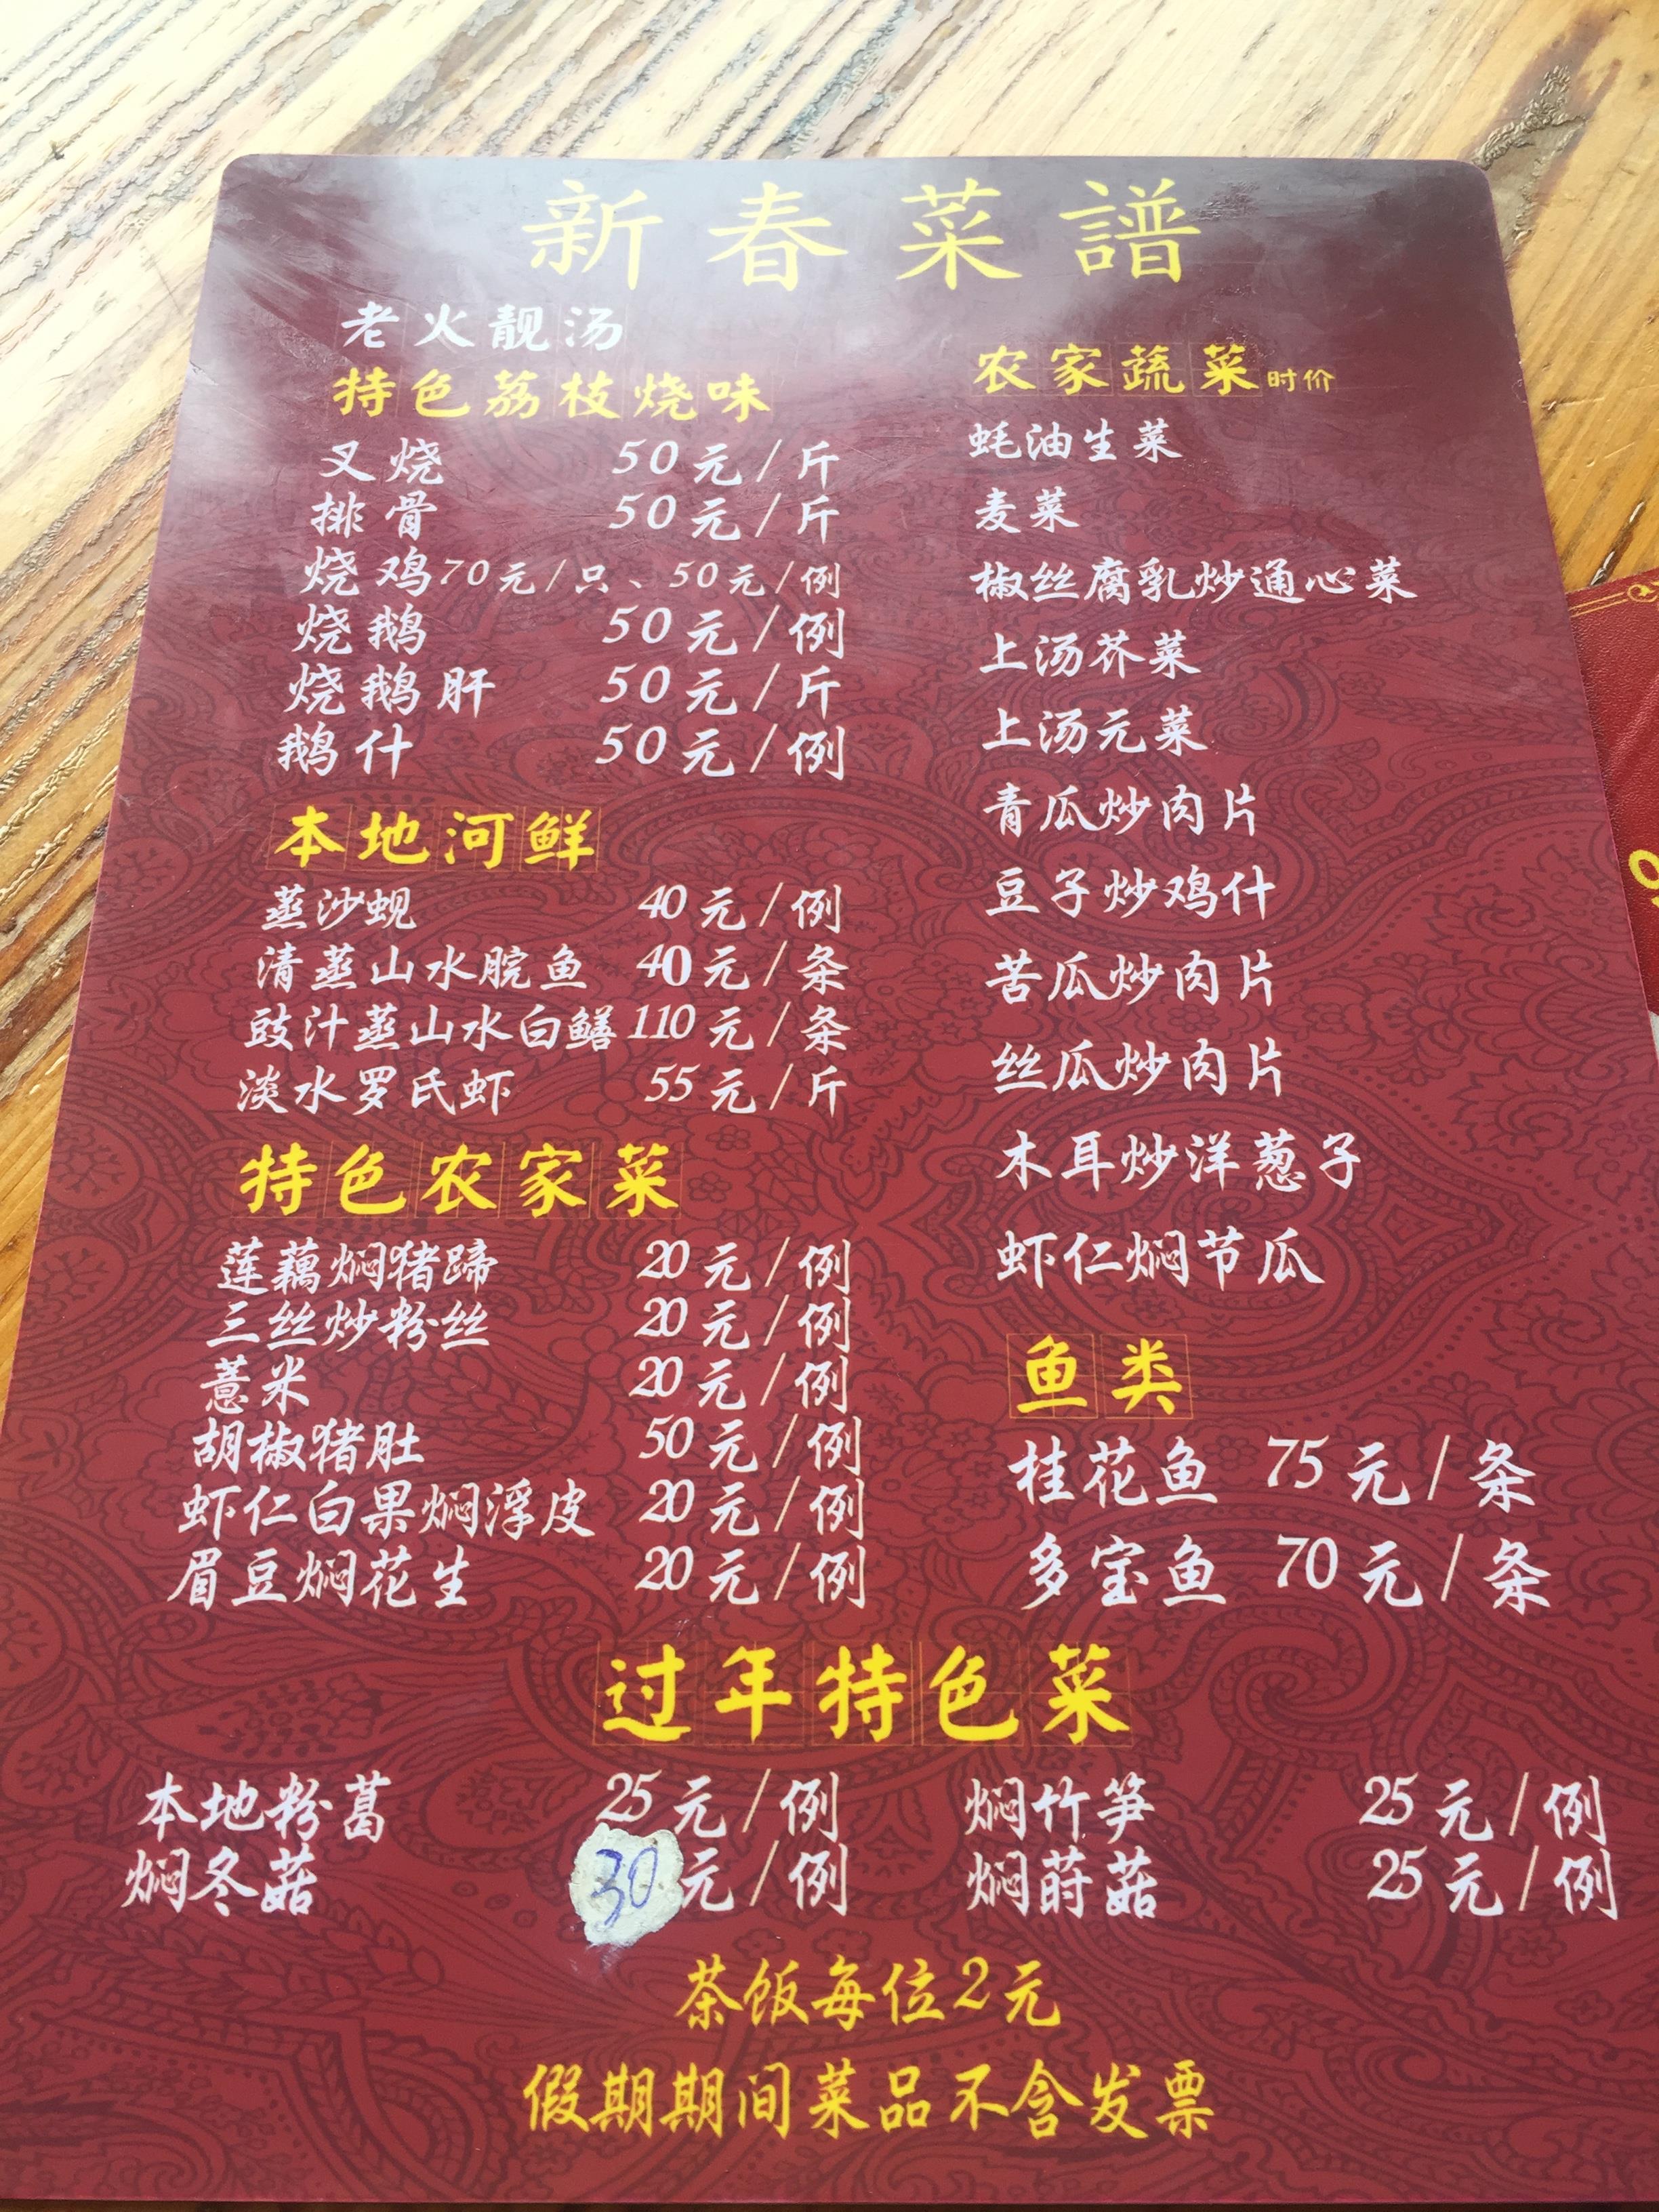 新春菜譜
老火靓汤
特色荔枝烧味
叉烧 50元/斤
排骨 50元/斤
烧鸡70元/只、50元/例
烧鹅 50元/例
烧鹅肝 50元/斤
鹅什 50元/例
本地河鲜
蒸沙蚬 40元/例
清蒸山水脘鱼 40元/条
豉汁蒸山水白鳝 110元/条
淡水罗氏虾 55元/斤
特色农家菜
莲藕焖猪蹄 20元/例
三丝炒粉丝 20元/例
薏米 20元/例
胡椒猪肚 50元/例
虾仁白果焖浮皮 20元/例
眉豆焖花生 20元/例
农家蔬菜时价
蚝油生菜
麦菜
椒丝腐乳炒通心菜
上汤芥菜
上汤元菜
青瓜炒肉片
豆子炒鸡什
苦瓜炒肉片
丝瓜炒肉片
木耳炒洋葱子
虾仁焖节瓜
鱼类
桂花鱼 75元/条
多宝鱼 70元/条
过年特色菜
本地粉葛 25元/例 焖竹笋 25元/例
焖冬菇 30元/例 焖莳菇 25元/例
茶饭每位2元
假期期间菜品不含发票
9